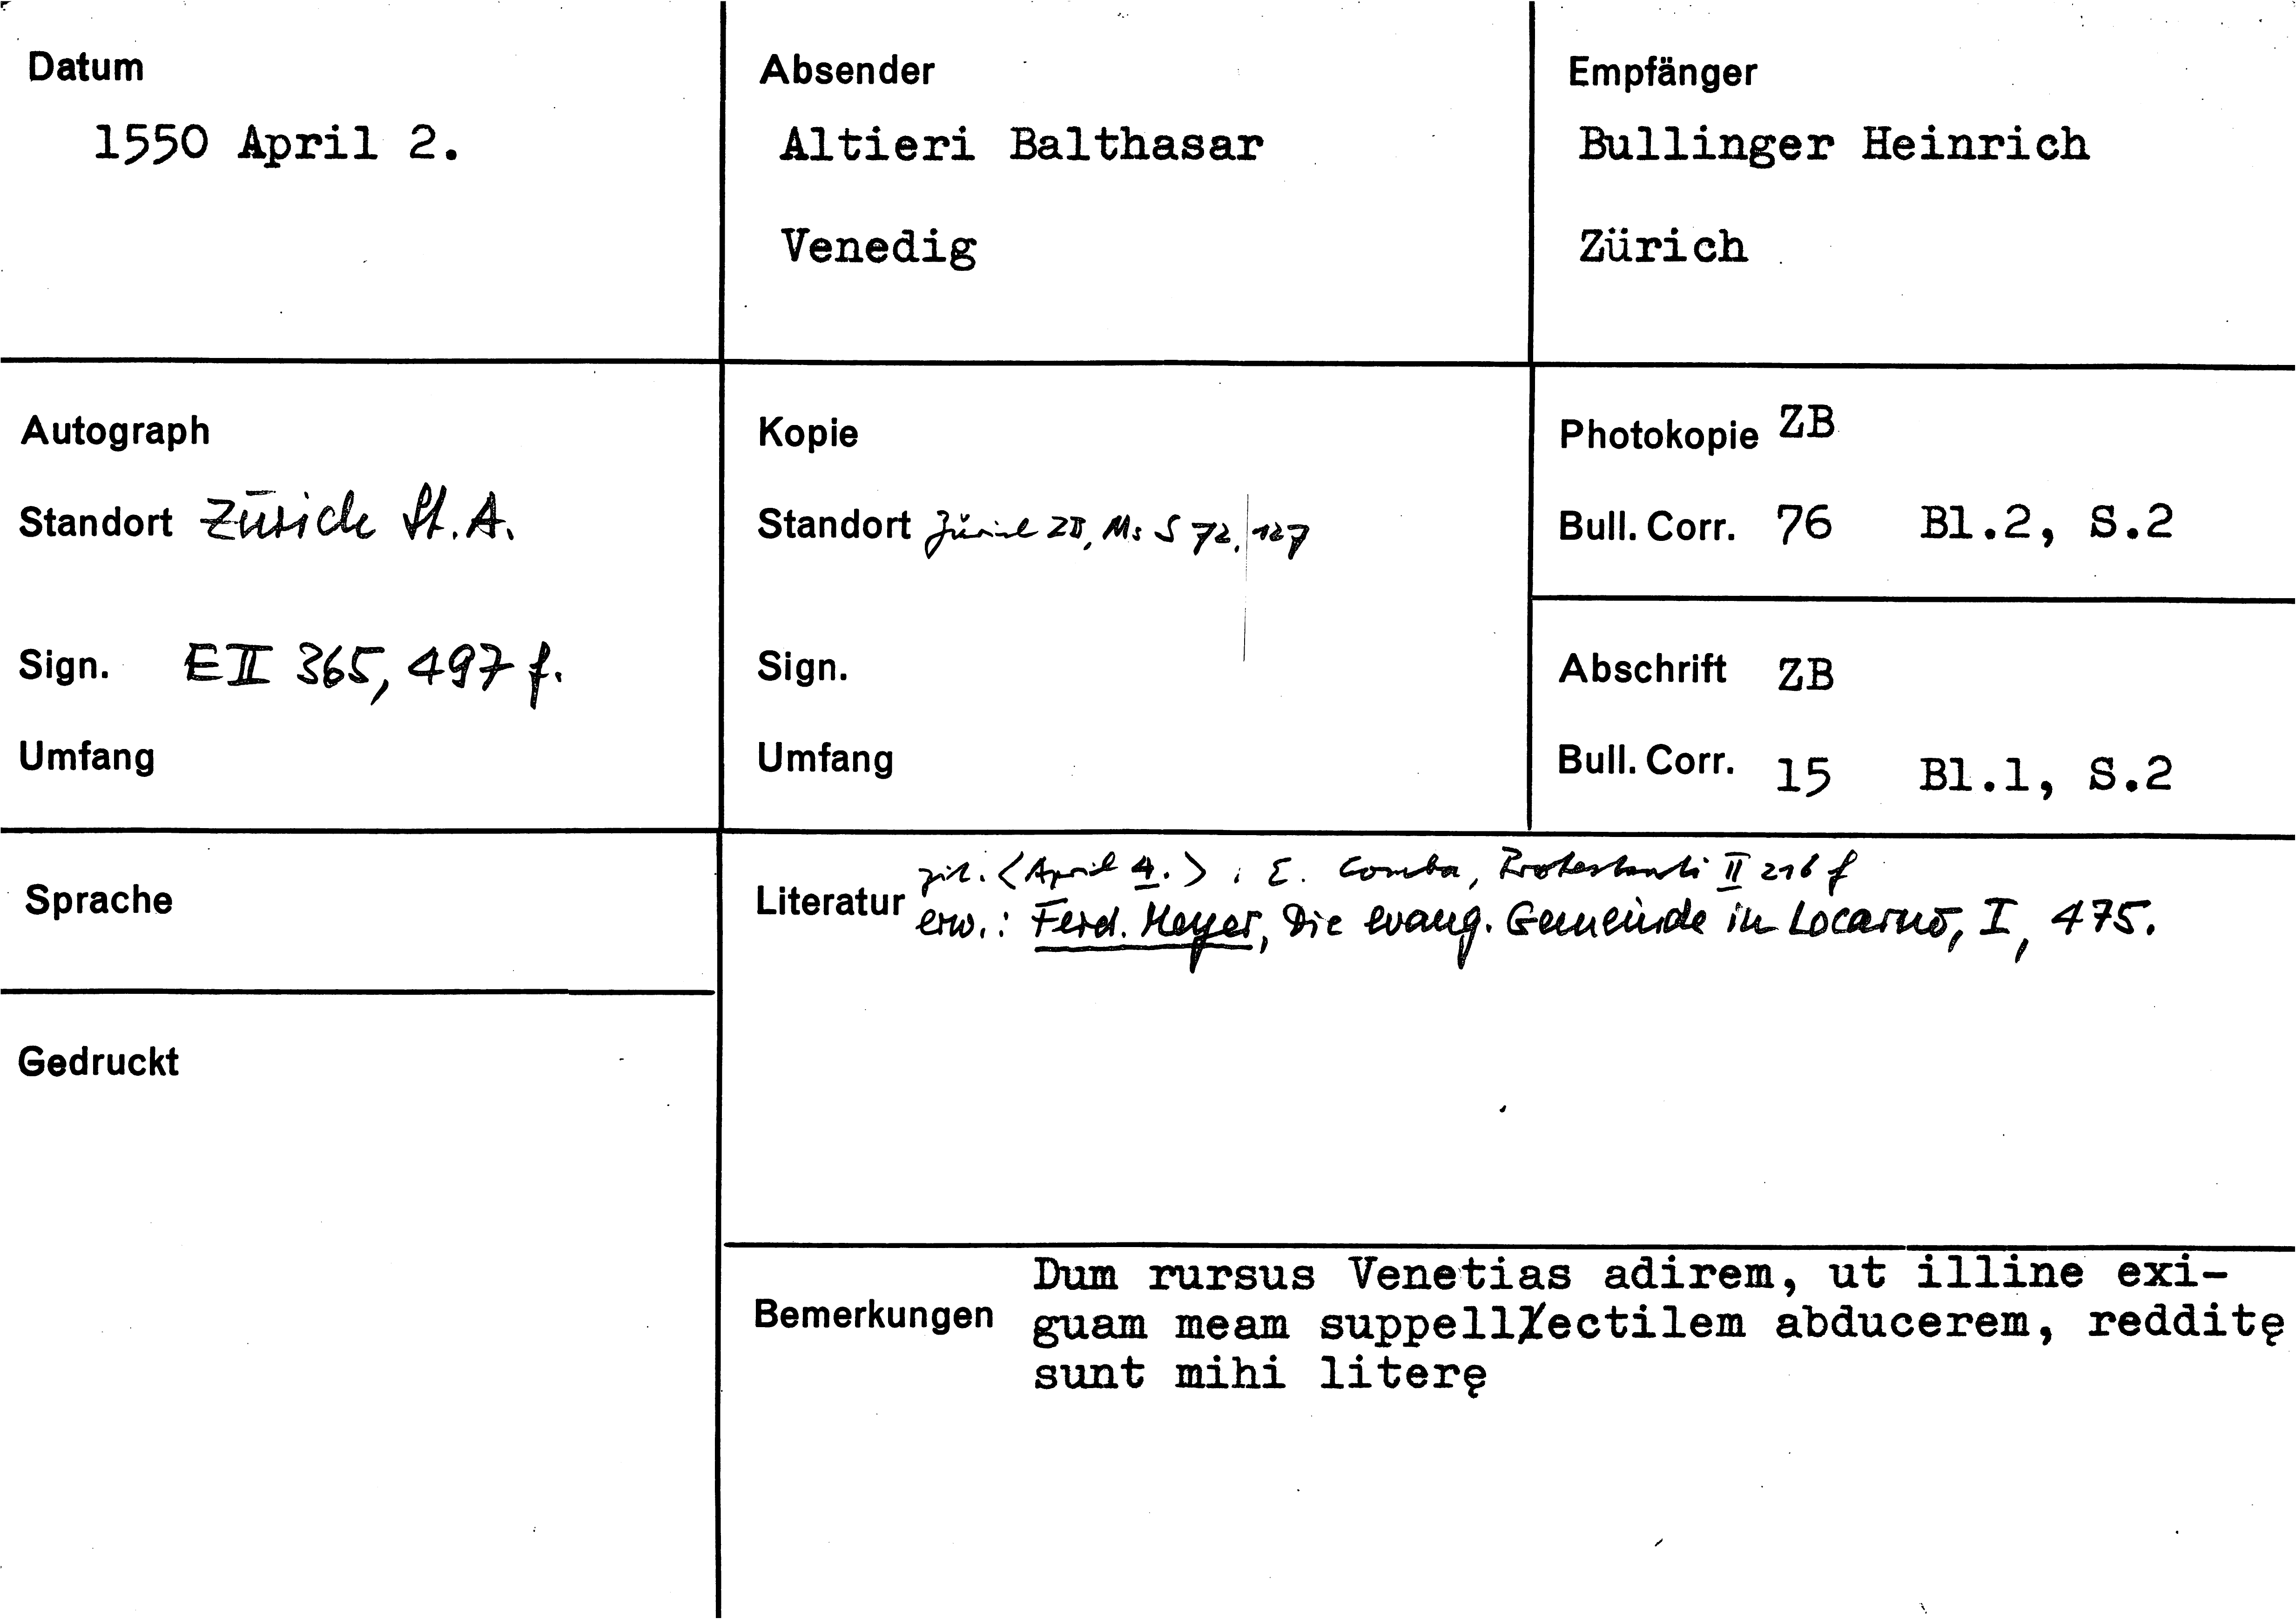 Datum
1550 April 2.
Absender
Altieri Balthasar
Venedig
Empfänger
Bullinger Heinrich
Zürich
Autograph
Standort Zürich St. A.
Sign. E II 365, 497 f.
Umfang
Kopie
Standort Zürich ZB, Ms S 72, 127
Sign.
Umfang
Photokopie ZB
Bull. Corr. 76 Bl.2, S.2
Abschrift ZB
Bull. Corr. 15 Bl.1, S.2
Sprache
Gedruckt
Literatur zit. <April 4.> : E. Comba, Protestanti II 216 f
erw.: Ferd. Meyer, Die evang. Gemeinde in Locarno, I, 475.
Bemerkungen
Dum rursus Venetias adirem, ut illine exi-
guam meam suppellectilem abducerem, redditę
sunt mihi literę